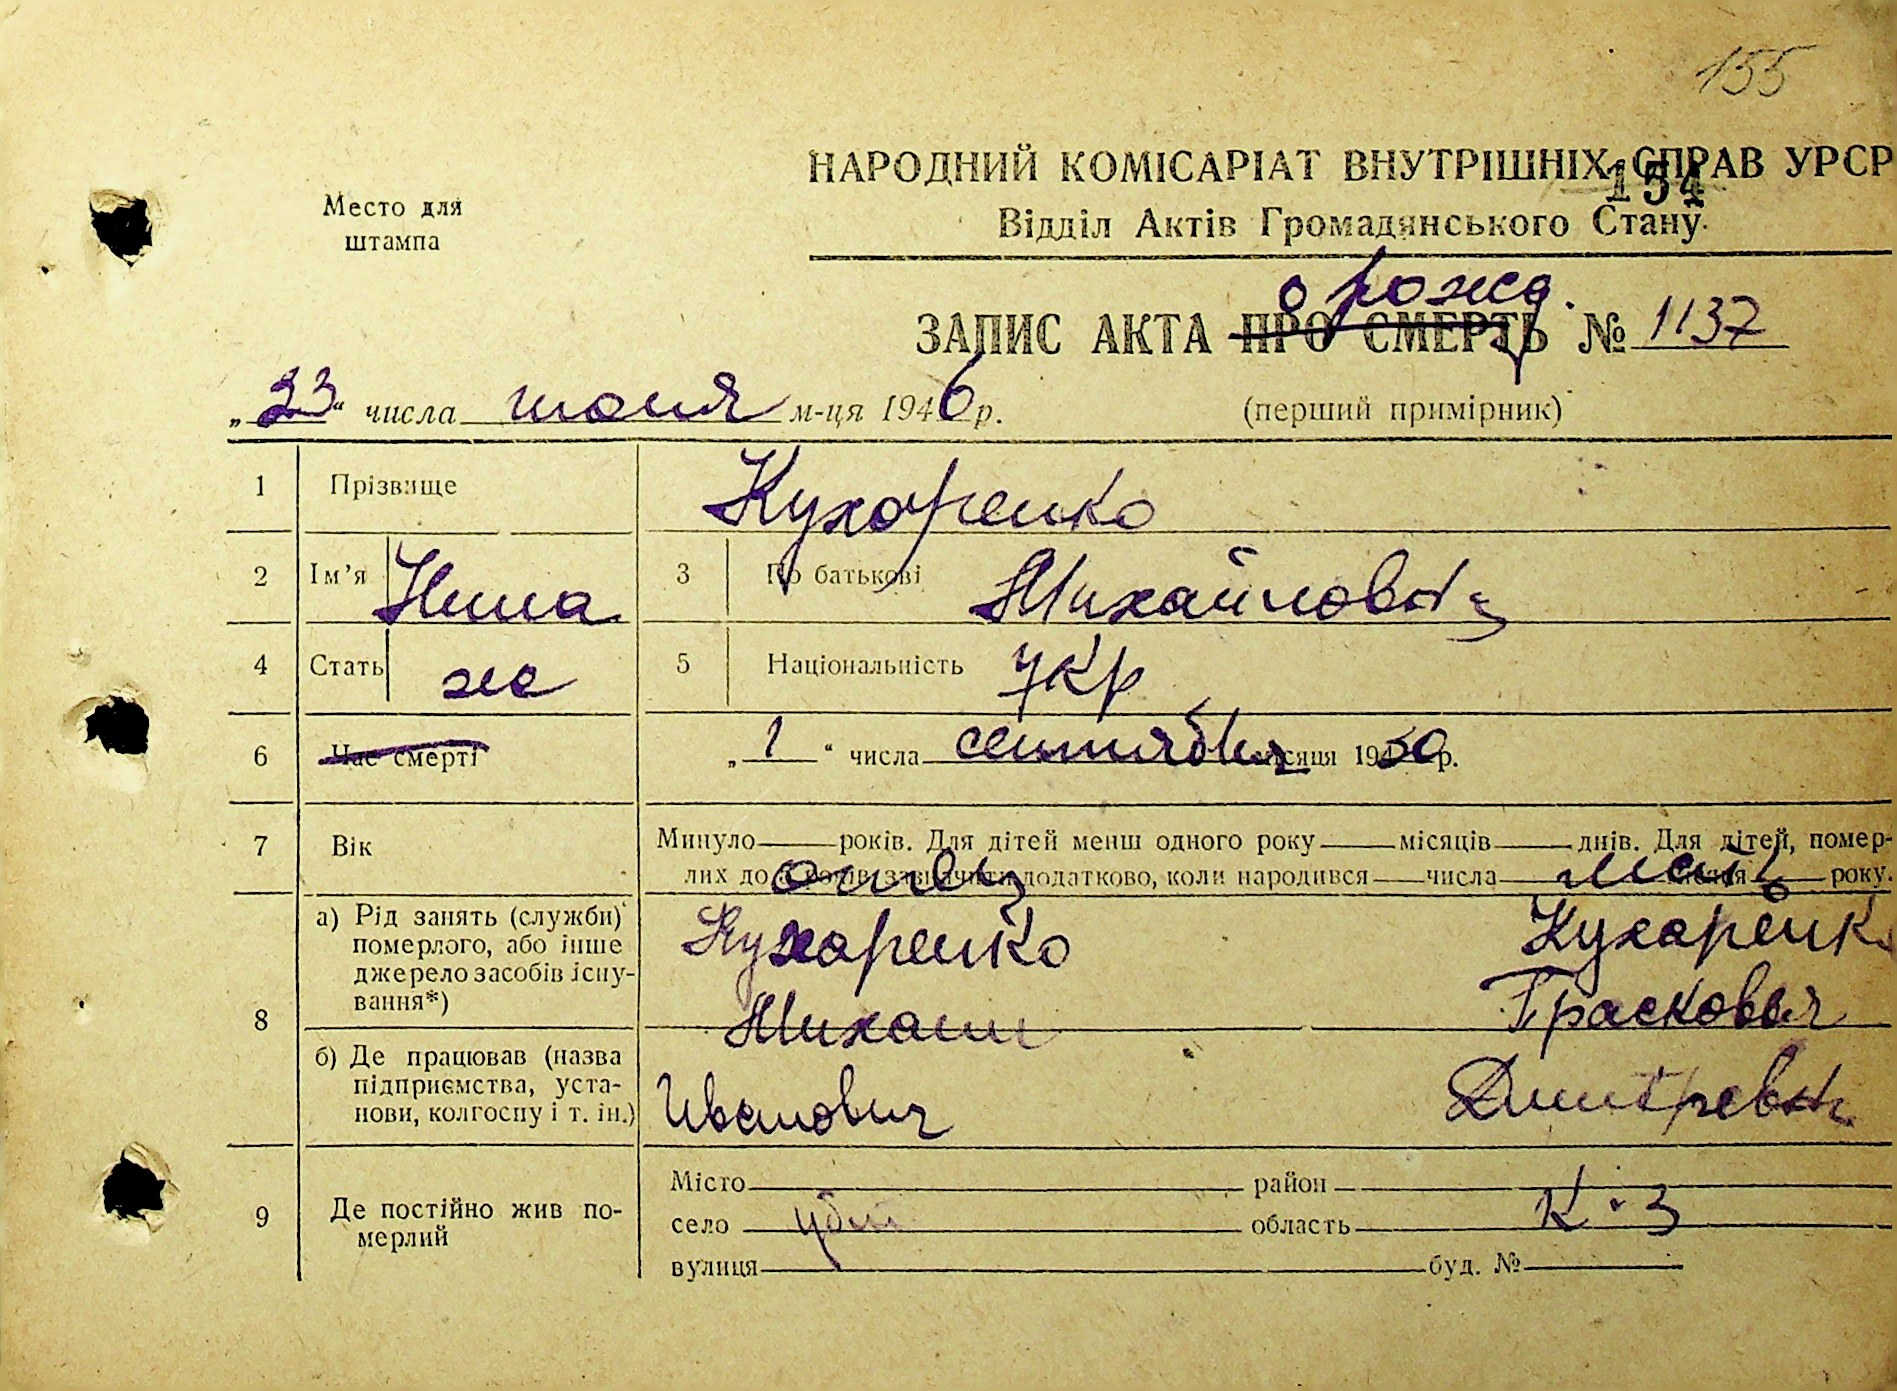 155
НАРОДНИЙ КОМІСАРІАТ ВНУТРІШНІХ СПРАВ УРСР
154
Место для
штампа
Відділ Актів Громадянського Стану
о рожд.
ЗАПИС АКТА ПРО СМЕРТЬ № 1137
„23“ числа июня м-ця 1946 р.
(перший примірник)
1 Прізвище Кухоренко
2 Ім’я Нина 3 По батькові Михайловна
4 Стать же 5 Національність Укр
6 Час смерті „1“ числа сентября місяця 19 р.
7 Вік Минуло років. Для дітей менш одного року місяців днів. Для дітей, помер-
лих до років, зазначити додатково, коли народився числа року.
отец мать
8 а) Рід занять (служби)
померлого, або інше
джерело засобів існу-
вання*)
Кухаренко Кухаренк
Михаил Прасковья
б) Де працював (назва
підприємства, уста-
нови, колгоспу і т. ін.)
Иванович Дмитревн
9 Де постійно жив по-
мерлий
Місто район
село убит область К-З
вулиця буд. №